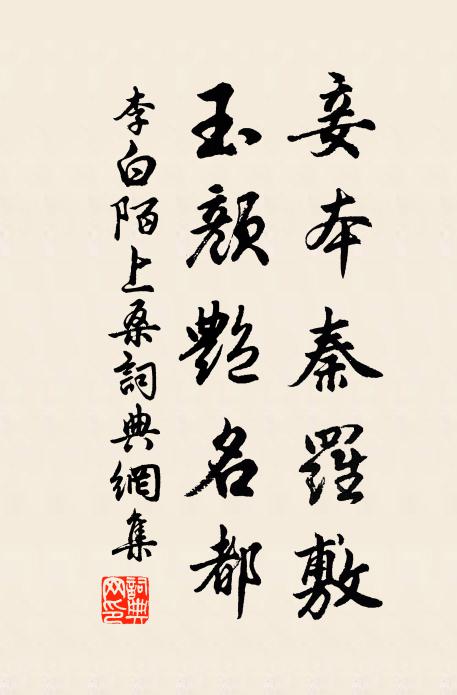 妾本秦羅敷
玉顏艷名都
李白陌上桑詞典網集
詞典網印